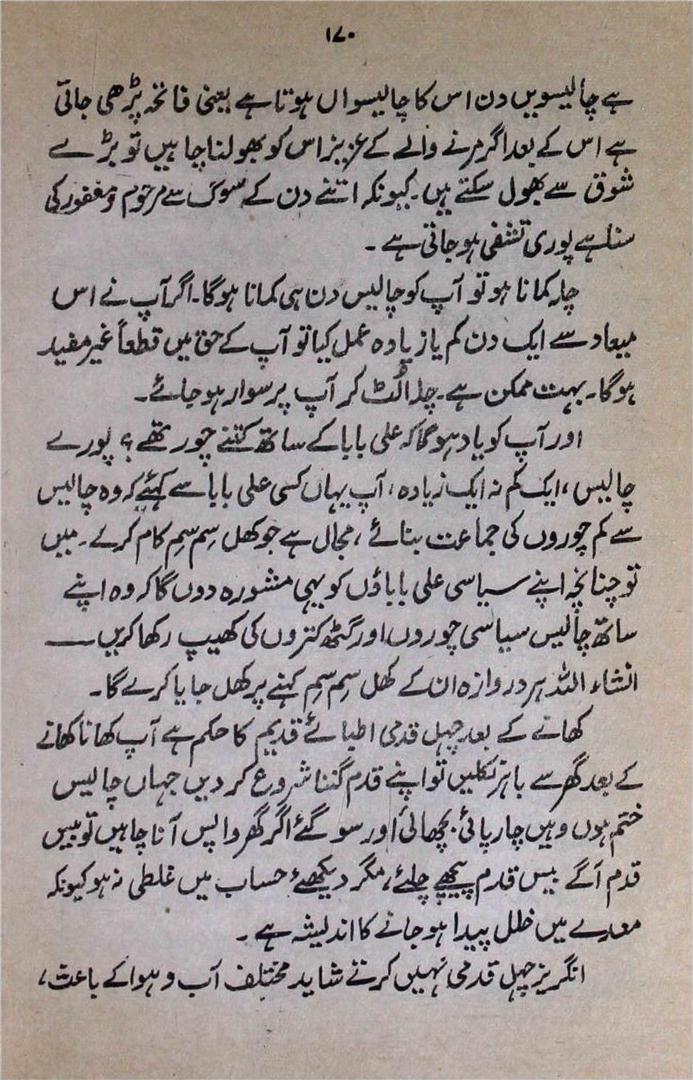 ۱۷۰
ہے چالیسویں دن اس کا چالیسواں ہوتا ہے یعنی فاتحہ پڑھی جاتی
ہے اس کے بعد اگر مرنے والے کے عزیز اس کو بھولنا چاہیں تو بڑے
شوق سے بھول سکتے ہیں۔ کیونکہ اتنے دن کے سوگ سے مرحوم و مغفور کی
سنا ہے پوری تشفی ہو جاتی ہے۔
چلہ کمانا ہو تو آپ کو چالیس دن ہی کمانا ہوگا۔ اگر آپ نے اس
میعاد سے ایک دن کم یا زیادہ عمل کیا تو آپ کے حق میں قطعاً غیر مفید
ہوگا۔ بہت ممکن ہے۔ چلہ الٹ کر آپ پر سوار ہو جائے۔
اور آپ کو یاد ہوگا کہ علی بابا کے ساتھ کتنے چور تھے؟ پورے
چالیس، ایک کم نہ ایک زیادہ، آپ یہاں کسی علی بابا سے کہئے کہ وہ چالیس
سے کم چوروں کی جماعت بنائے، مجال ہے جو کھل سِم سِم کام کر لے۔ میں
تو چنانچہ اپنے سیاسی علی باباؤں کو یہی مشورہ دوں گا کہ وہ اپنے
ساتھ چالیس سیاسی چوروں اور گٹھ کتروں کی کھیپ رکھا کریں ـــ
انشاء اللہ ہر دروازہ ان کے کھل سِم سِم کہنے پر کھل جایا کرے گا۔
کھانے کے بعد چہل قدمی اطبائے قدیم کا حکم ہے آپ کھانا کھانے
کے بعد گھر سے باہر نکلیں تو اپنے قدم گننا شروع کر دیں جہاں چالیس
ختم ہوں وہیں چارپائی بچھائی اور سو گئے اگر گھر واپس آنا چاہیں تو بیس
قدم آگے بیس قدم پیچھے چلئے، مگر دیکھئے حساب میں غلطی نہ ہو کیونکہ
معدے میں خلل پیدا ہو جانے کا اندیشہ ہے۔
انگریز چہل قدمی نہیں کرتے شاید مختلف آب و ہوا کے باعث،